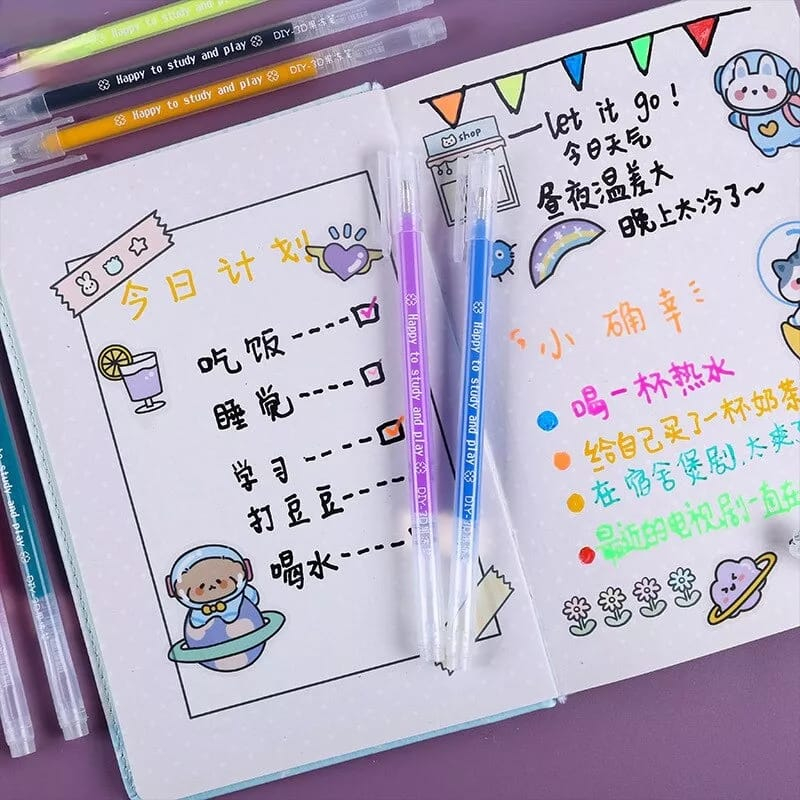 Happy to study and play
Happy to study and play DIY-3D果冻笔
Happy to study and play DIY-3D果冻笔
今日计划
吃饭
睡觉
学习
打豆豆
喝水
Happy to study and play DIY-3D
Happy to study and play DIY-3D
shop
let it go!
今日天气
昼夜温差大
晚上太冷了~
小确幸
喝一杯热水
给自己买了一杯奶茶
在宿舍煲剧,太爽
最近的电视剧一直在